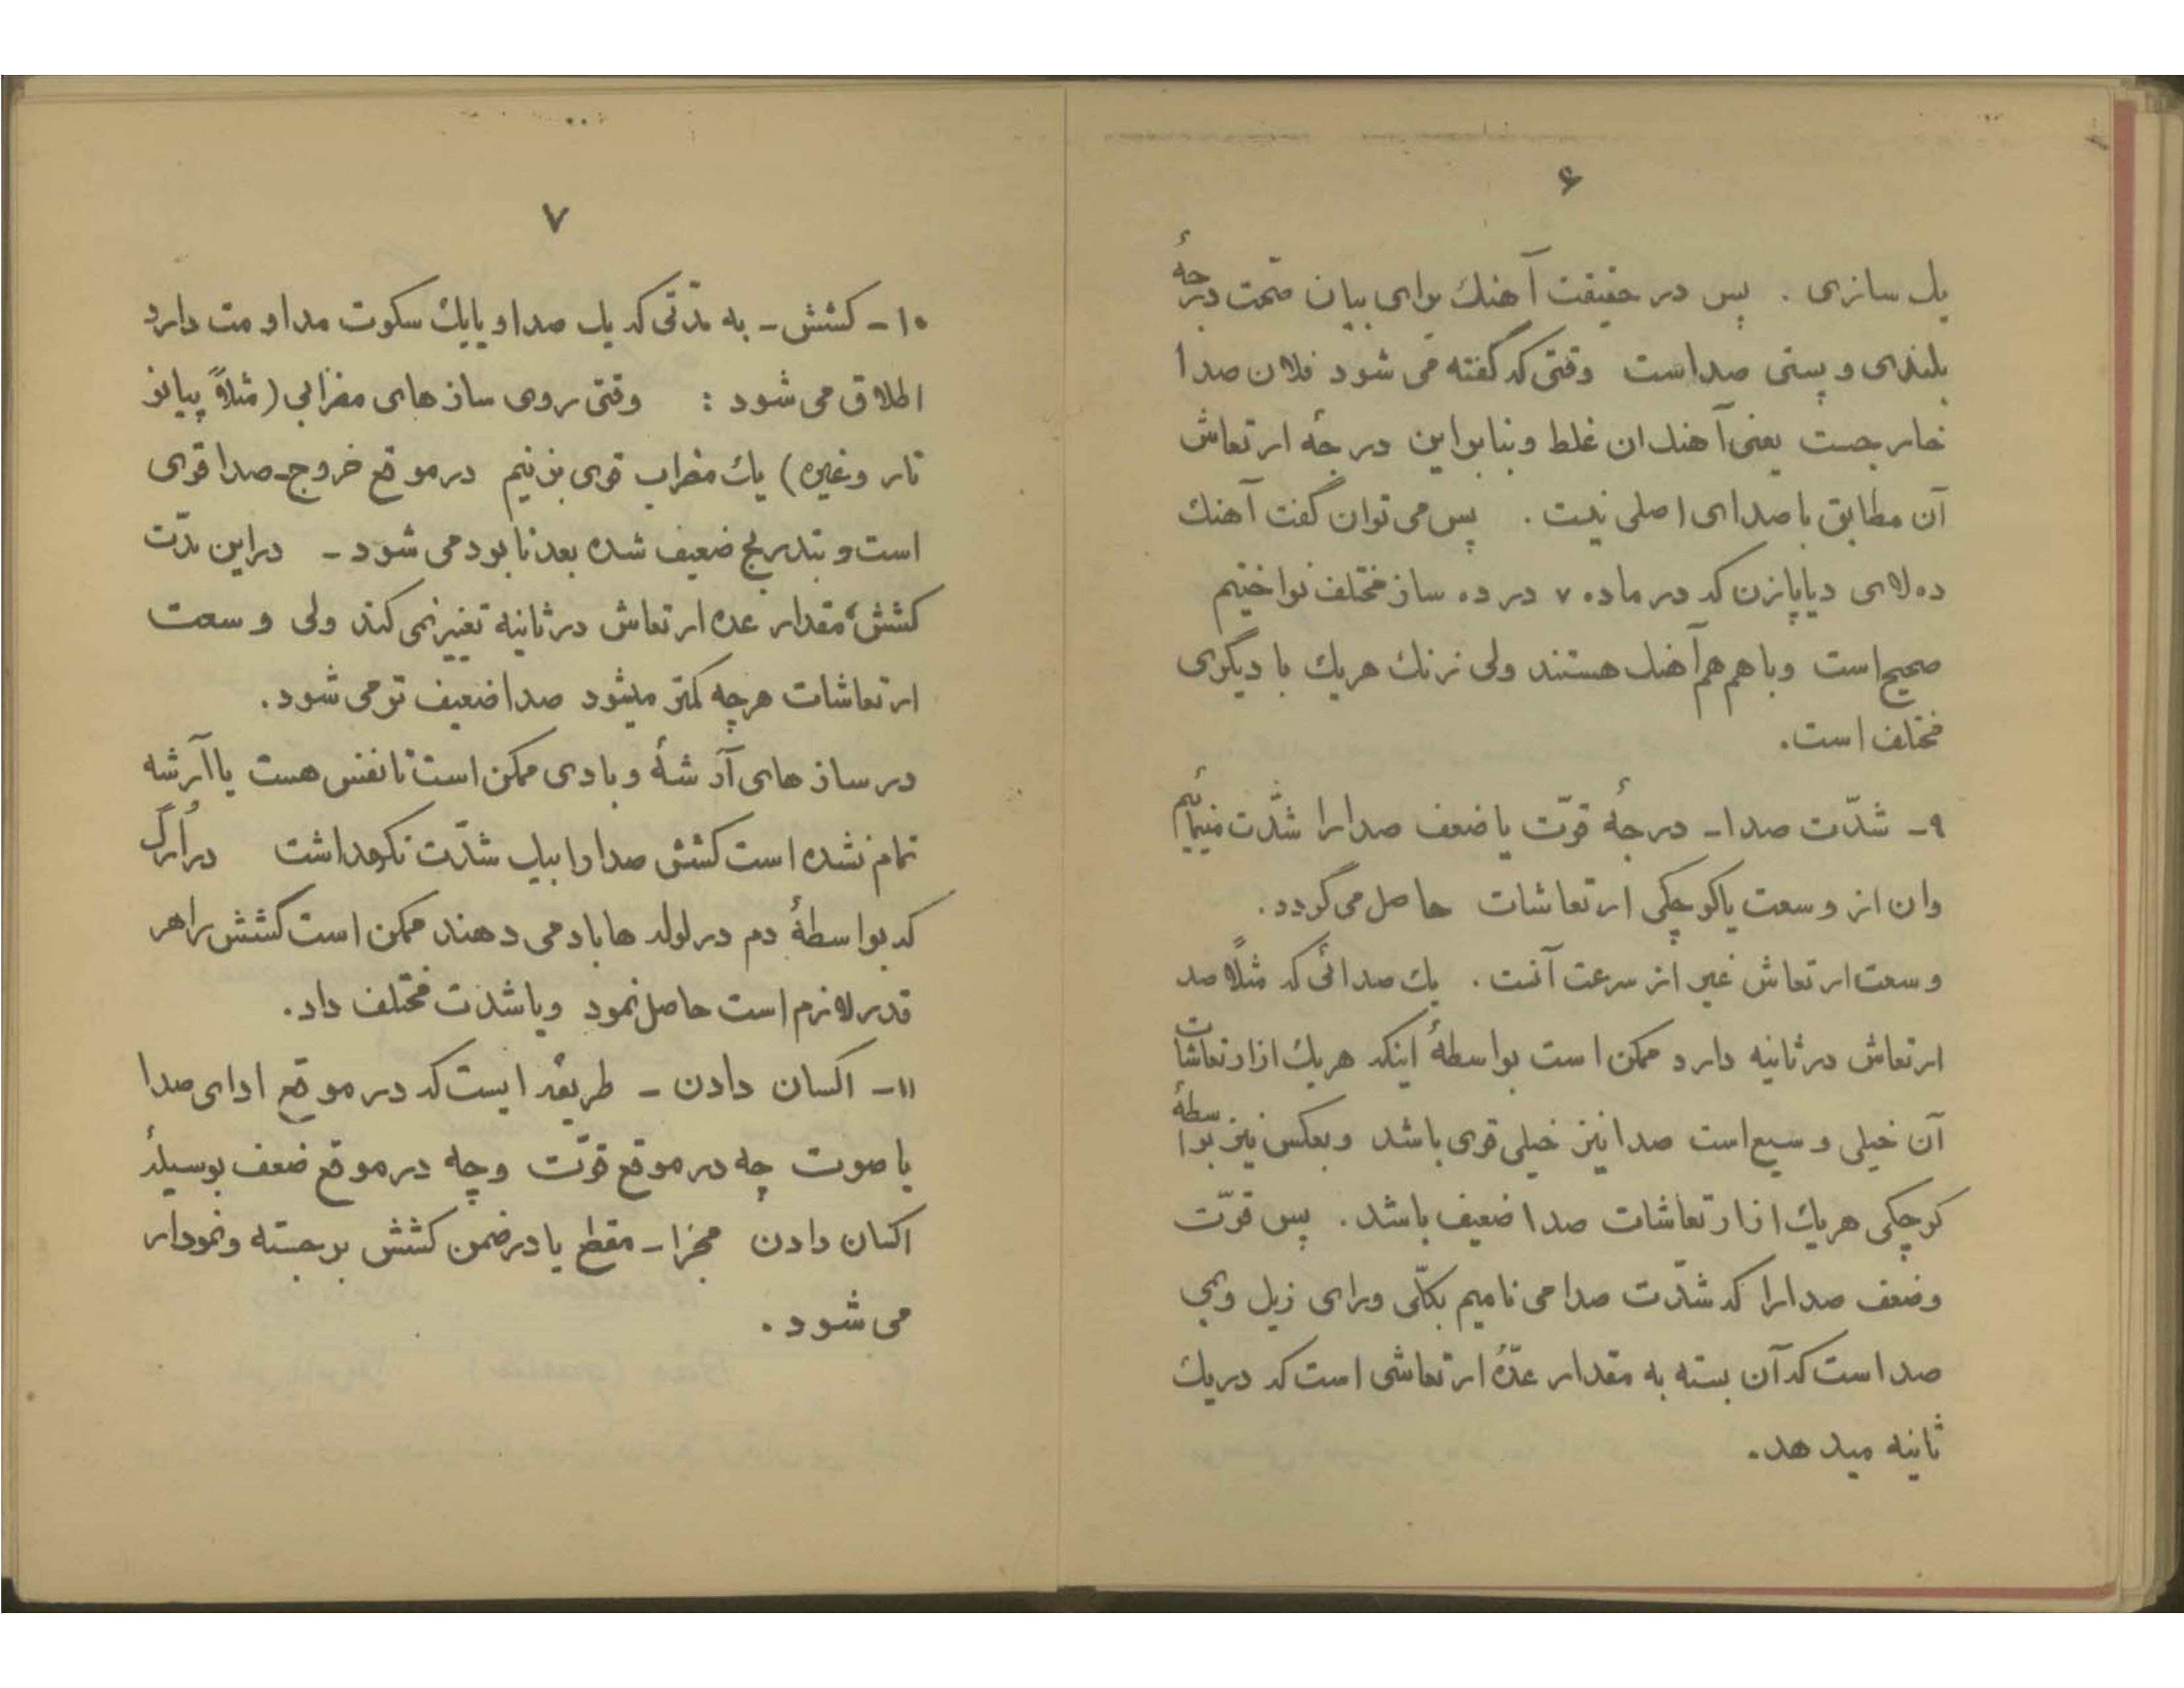 ۶
یک سازی . پس در حقیقت آهنك برای بیان صحت درجهٔ
بلندی و پستی صداست وقتی که گفته می شود فلان صدا
خارجست یعنی آهنك ان غلط و بنابراین درجهٔ ارتعاش
آن مطابق با صدای اصلی نیست . پس می توان گفت آهنك
ده لای دیاپازن که در ماده ۷ در ده ساز مختلف نواختیم
صحیح است وباهم هم آهنك هستند ولی زنك هریك با دیگری
مختلف است.
۹ – شدّت صدا – درجهٔ قوّت یا ضعف صدارا شدّت مینامیم
وان از وسعت یا کوچکی ارتعاشات حاصل می گردد.
وسعت ارتعاش غیر از سرعت آنست . یك صدائی که مثلاً صد
ارتعاش در ثانیه دارد ممکن است بواسطهٔ اینکه هریك از ارتعاشات
آن خیلی وسیع است صدا نیز خیلی قوی باشد وبعکس نیز بواسطهٔ
کوچکی هریك از ارتعاشات صدا ضعیف باشد . پس قوّت
وضعف صدارا که شدّت صدا می نامیم بکلّی ورای زیل وبمی
صداست که آن بسته به مقدار عدّهٔ ارتعاشی است که دریك
ثانیه میدهد.
۷
۱۰ – کشش – به مدّتی که یك صدا و یا یك سکوت مداومت دارد
اطلاق می شود : وقتی روی ساز های مضرابی (مثلاً پیانو
تار وغیره) یك مضراب قوی بزنیم در موقع خروج صدا قوی
است و بتدریج ضعیف شده بعد نابود می شود – دراین مدّت
کشش، مقدار عده ارتعاش در ثانیه تغییر نمی کند ولی وسعت
ارتعاشات هرچه کمتر میشود صدا ضعیف تر می شود.
در ساز های آرشهٔ و بادی ممکن است تا نفس هست یا آرشه
تمام نشده است کشش صدا را بیك شدّت نگهداشت در اُرگ
که بواسطهٔ دم در لوله ها باد می دهند ممکن است کشش را هر
قدر لازم است حاصل نمود و یا شدّت مختلف داد.
۱۱ – اکسان دادن – طریقه ایست که در موقع ادای صدا
یا صوت چه در موقع قوّت و چه در موقع ضعف بوسیلهٔ
اکسان دادن مجزا – مقطع یا در ضمن کشش برجسته و نمودار
می شود .